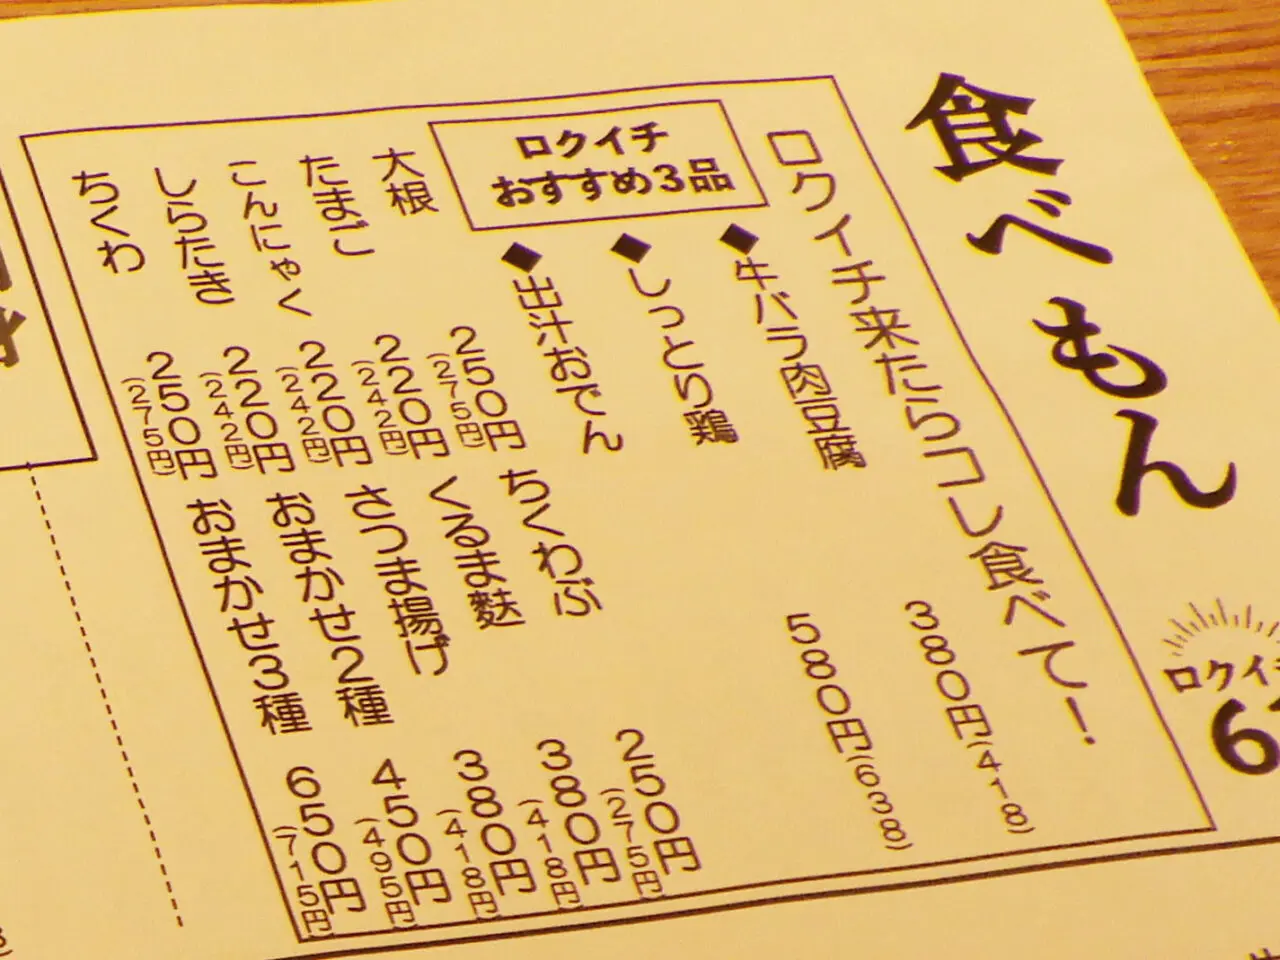 食べもん
ロクイチ来たらコレ食べて！
ロクイチ
おすすめ3品
◆牛バラ肉豆腐 380円(418)
◆しっとり鶏 580円(638)
◆出汁おでん
大根 250円(275円)
たまご 220円(242円)
こんにゃく 220円(242円)
しらたき 220円(242円)
ちくわ 250円(275円)
ちくわぶ 250円(275円)
くるま麩 380円(418円)
さつま揚げ 380円(418円)
おまかせ2種 450円(495円)
おまかせ3種 650円(715円)
ロクイチ
6